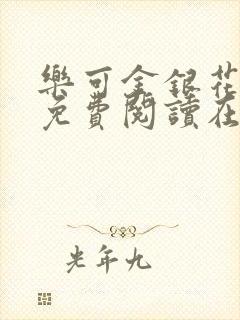 樂可金銀花
免費閱讀在
光年九